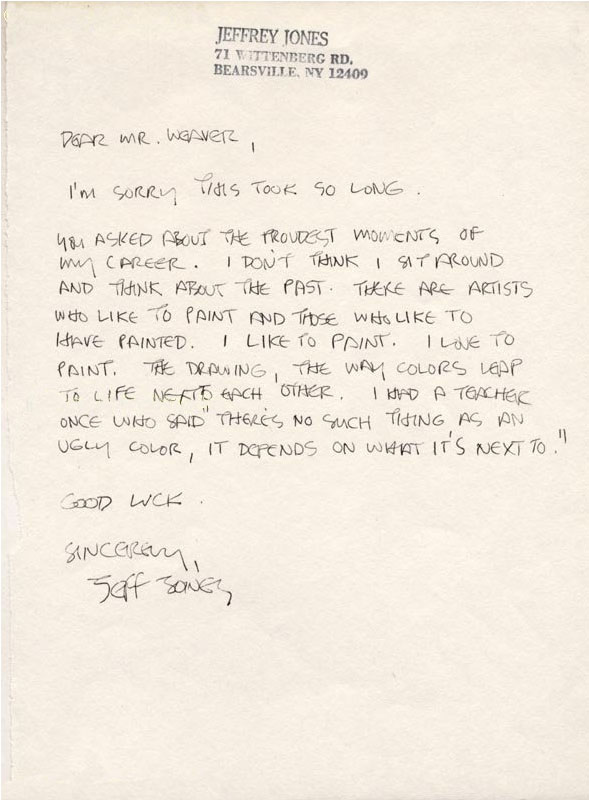 JEFFREY JONES
71 WITTENBERG RD.
BEARSVILLE, NY 12409
DEAR MR. WEAVER,
I'M SORRY THIS TOOK SO LONG.
YOU ASKED ABOUT THE PROUDEST MOMENTS OF
MY CAREER. I DON'T THINK I SIT AROUND
AND THINK ABOUT THE PAST. THERE ARE ARTISTS
WHO LIKE TO PAINT AND THOSE WHO LIKE TO
HAVE PAINTED. I LIKE TO PAINT. I LOVE TO
PAINT. THE DRAWING, THE WAY COLORS LEAP
TO LIFE NEXT TO EACH OTHER. I HAD A TEACHER
ONCE WHO SAID "THERE'S NO SUCH THING AS AN
UGLY COLOR, IT DEPENDS ON WHAT IT'S NEXT TO."
GOOD LUCK.
SINCERELY,
JEFF JONES